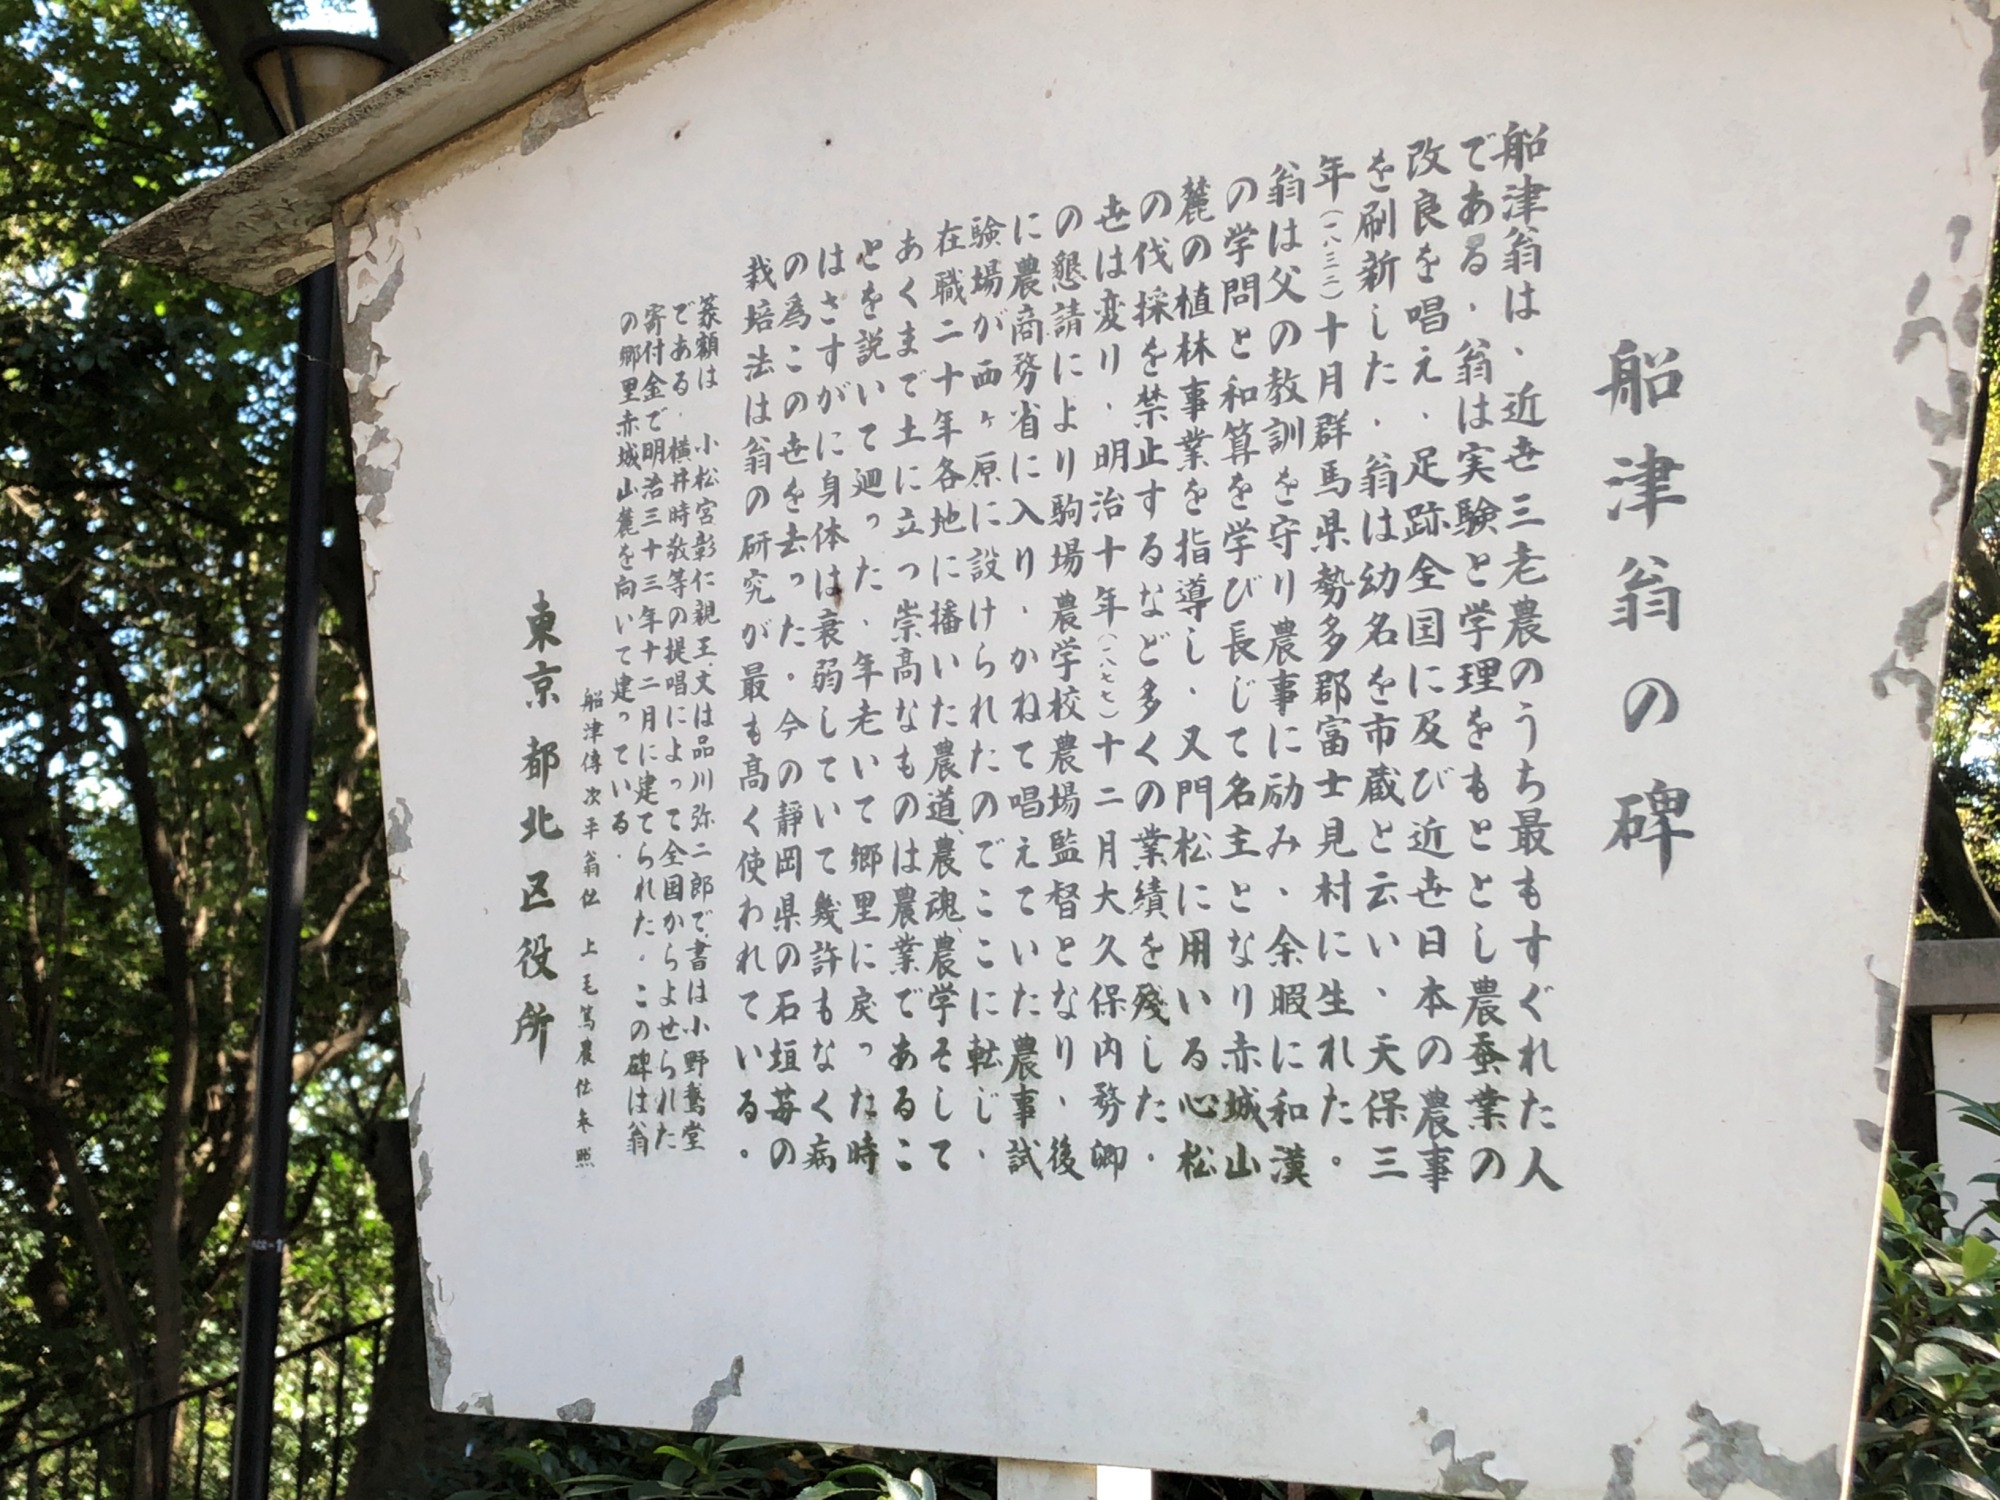 船津翁の碑
船津翁は、近世三老農のうち最もすぐれた人
である。翁は実験と学理をもととし農蚕業の
改良を唱え、足跡全国に及び近世日本の農事
を刷新した。翁は幼名を市蔵と云い、天保三
年(一八三二)十月群馬県勢多郡富士見村に生れた。
翁は父の教訓を守り農事に励み、余暇に和漢
の学問と和算を学び長じて名主となり赤城山
麓の植林事業を指導し、又門松に用いる心松
の伐採を禁止するなど多くの業績を残した。
世は変り、明治十年(一八七七)十二月大久保内務卿
の懇請により駒場農学校農場監督となり、後
に農商務省に入り、かねて唱えていた農事試
験場が西ヶ原に設けられたのでここに転じ、
在職二十年各地に播いた農道、農魂、農学そして
あくまで土に立つ崇高なものは農業であるこ
とを説いて廻った。年老いて郷里に戻った時
はさすがに身体は衰弱していて幾許もなく病
の為この世を去った。今の静岡県の石垣苺の
栽培法は翁の研究が最も高く使われている。
篆額は 小松宮彰仁親王、文は品川弥二郎で、書は小野鵞堂
である。横井時敬等の提唱によって全国からよせられた
寄付金で明治三十三年十二月に建てられた。この碑は翁
の郷里赤城山麓を向いて建っている。
船津傳次平翁伝 上毛篤農伝参照
東京都北区役所